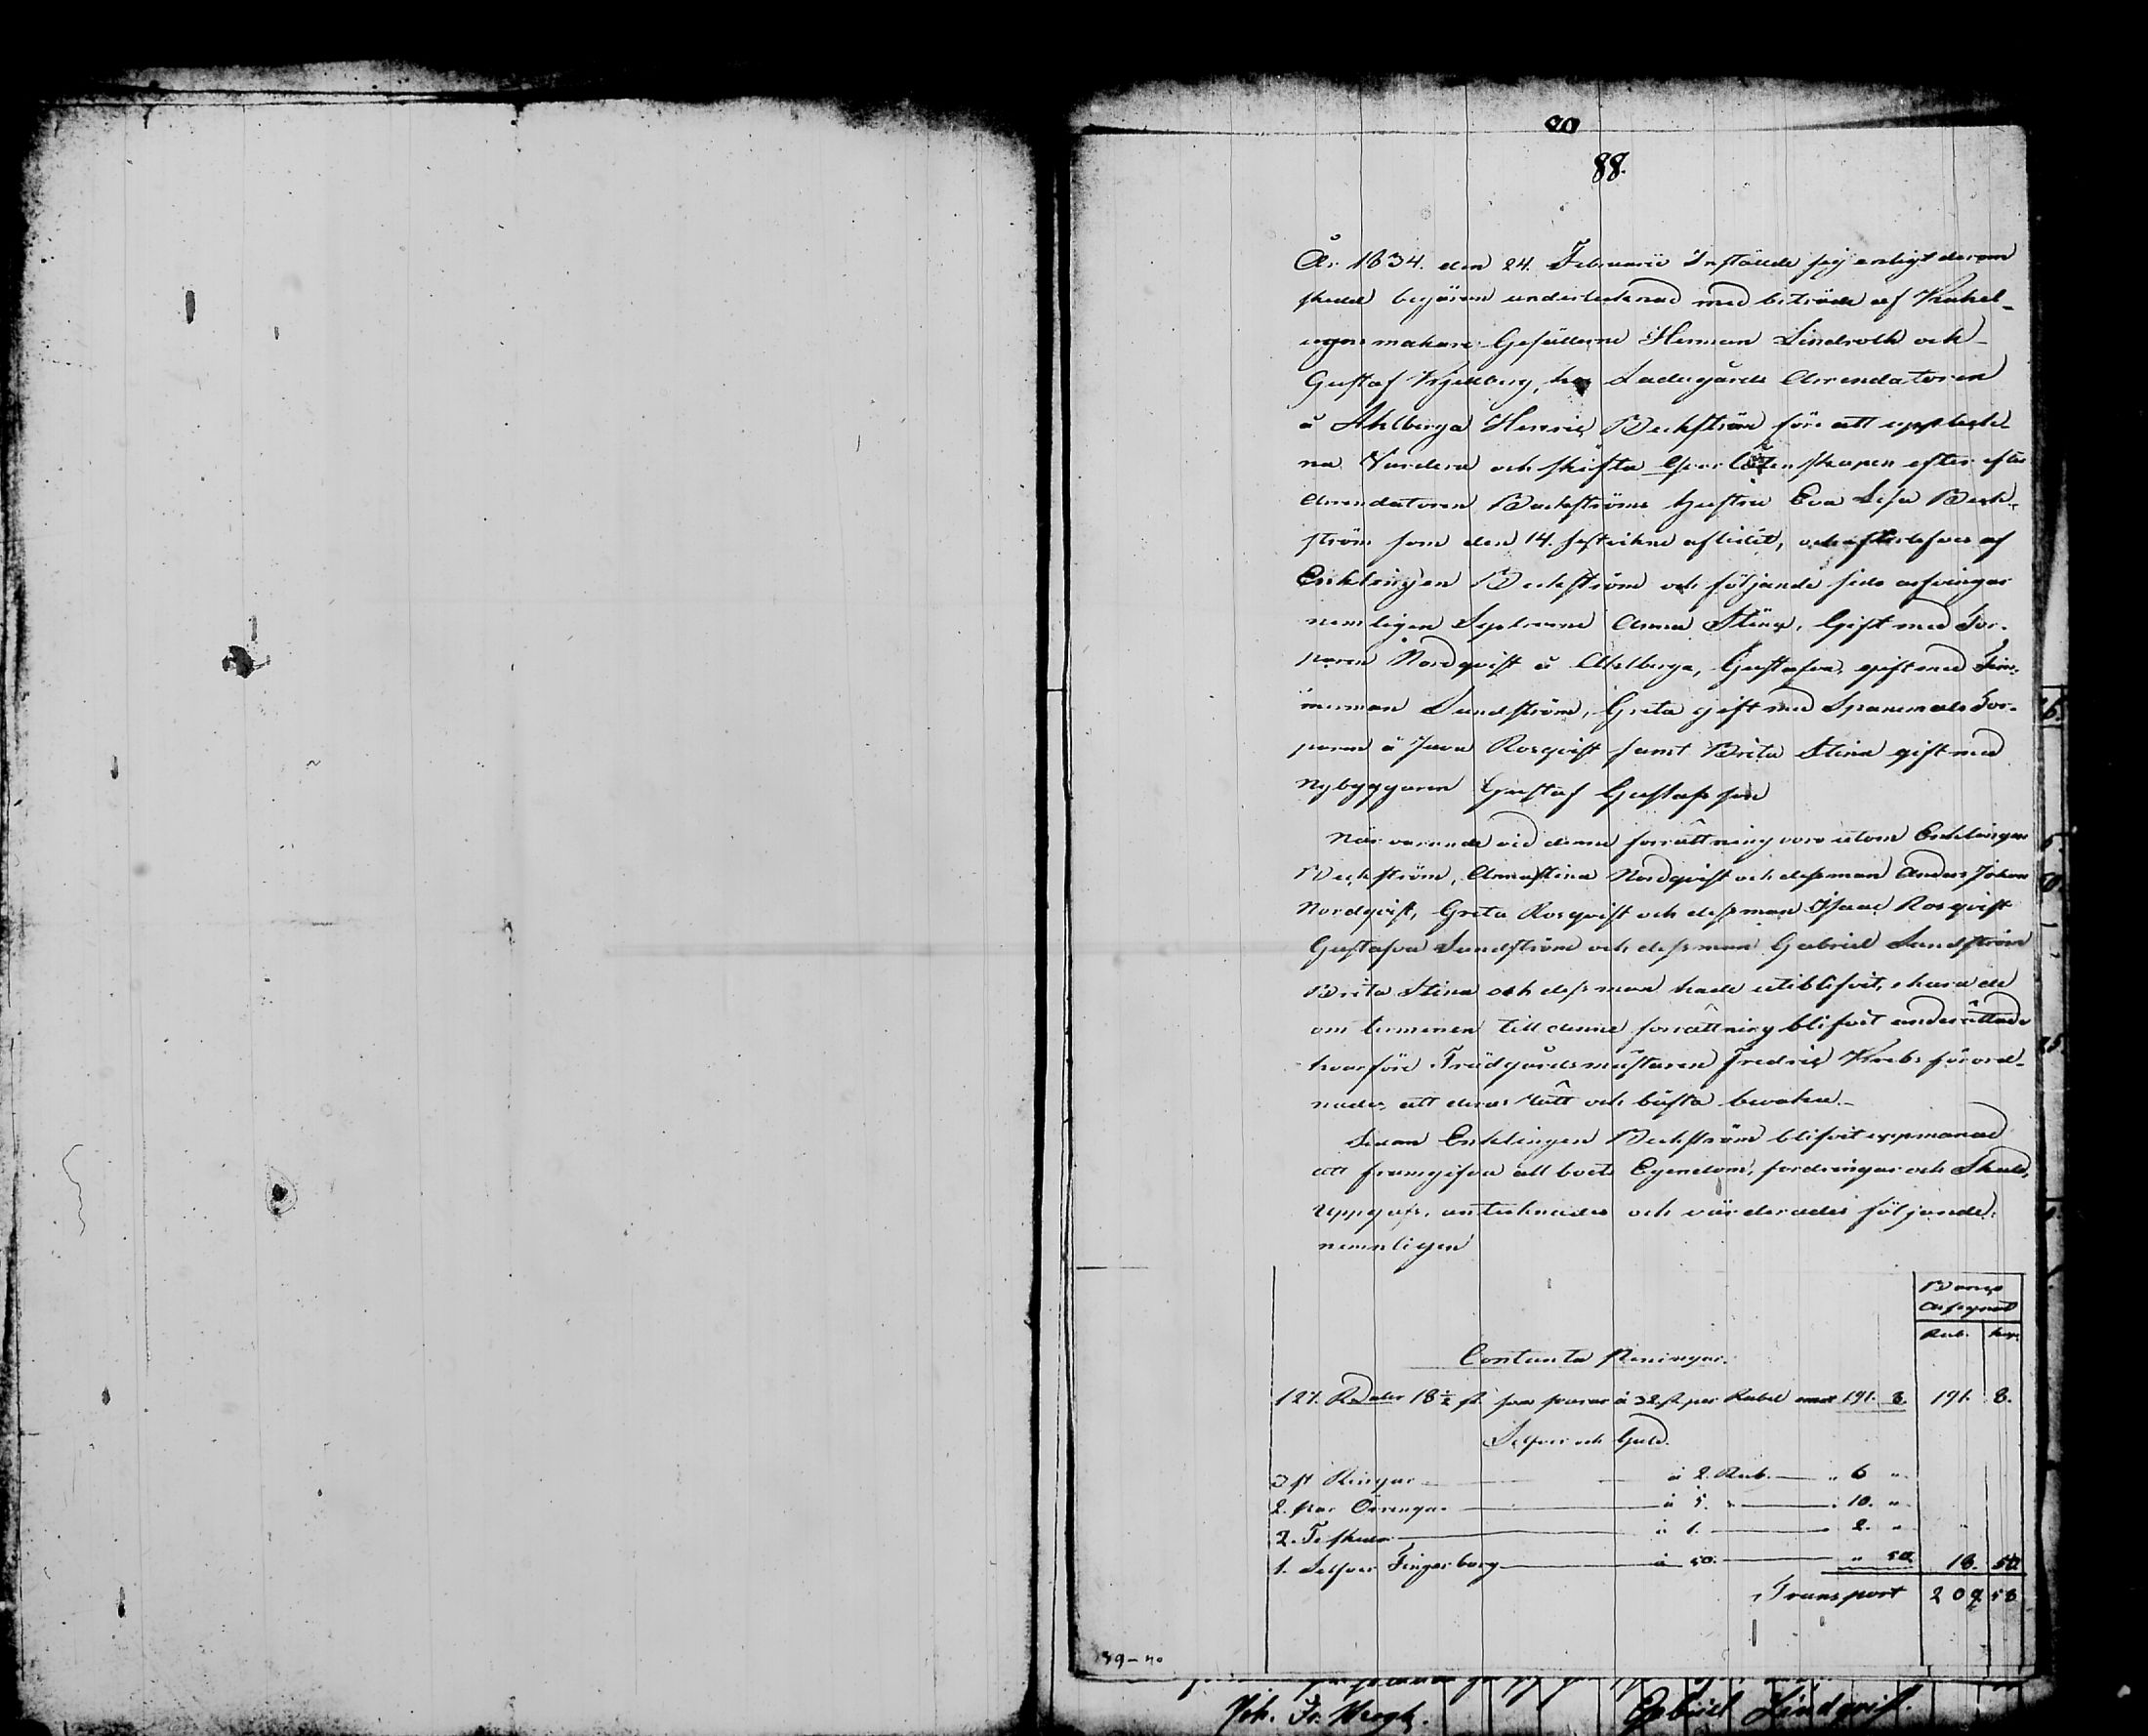 90
88.
År 1834. den 24. Februarii Instälde sig enligt derom
skedd begäran undertecknad med biträde af Kakel-
ugns makare Gesällerne Herman Lindroth och
Gustaf Kjellberg, hos Ladugårds Arrendatoren
å Ahlberga Henric Beckström före att upptek-
na Värdera och skifta qvarlåtenskapen efter
Arrendatoren Beckströms hustru Eva Lisa Beck-
ström som den 14. sistledne aflidit, och efterlefves af
Enklingen Beckström och följande sido arfvingar
nemligen Systrarne Anna Stina, Gift med Tor-
paren Nordqvist å Ahlberga, Gustafva, gift med Tim-
merman Sundström, Greta gift med Torparen
å Rosqvist samt Brita Stina gift med
Nybyggaren Gustaf Gustafsson
Närvarande vid denna förrättning voro utom Enklingen
Beckström, Anna Stina Nordqvist och dess man Anders Johan
Nordqvist, Greta Rosqvist och dess man Isaac Rosqvist
Gustafva Sundström och dess man Gabriel Sundström
Brita Stina och dess man hade uteblifvit, ehuru de
om terminen till denna förrättning blifvit underrättade
hvarföre Trädgårdsmästaren Fredric Krebs förord-
nades att deras rätt och bästa bevaka.
Sedan Enklingen Beckström blifvit uppmanad
att framgifva all boets Egendom, fordringar och Skuld,
uppgafs, antecknades och värderades följande,
nemnligen
Banco
Assignat
Rub. kop.
Contanta Peningar.
127. R Daler 18½ sk som svarar à 32 sk per Rubel 191. 8. 191. 8.
Silfver och Guld.
3 st Ringar à 2. Rub. " 6 "
2. par Örringar à 5. " 10. "
2. Teskedar à 1. 2. "
1. Silfver Fingerborg à 50. " 50 18. 50
Transport 209 58
39-40
Joh. Fr. Krogh. Gabriel Lindqvist.